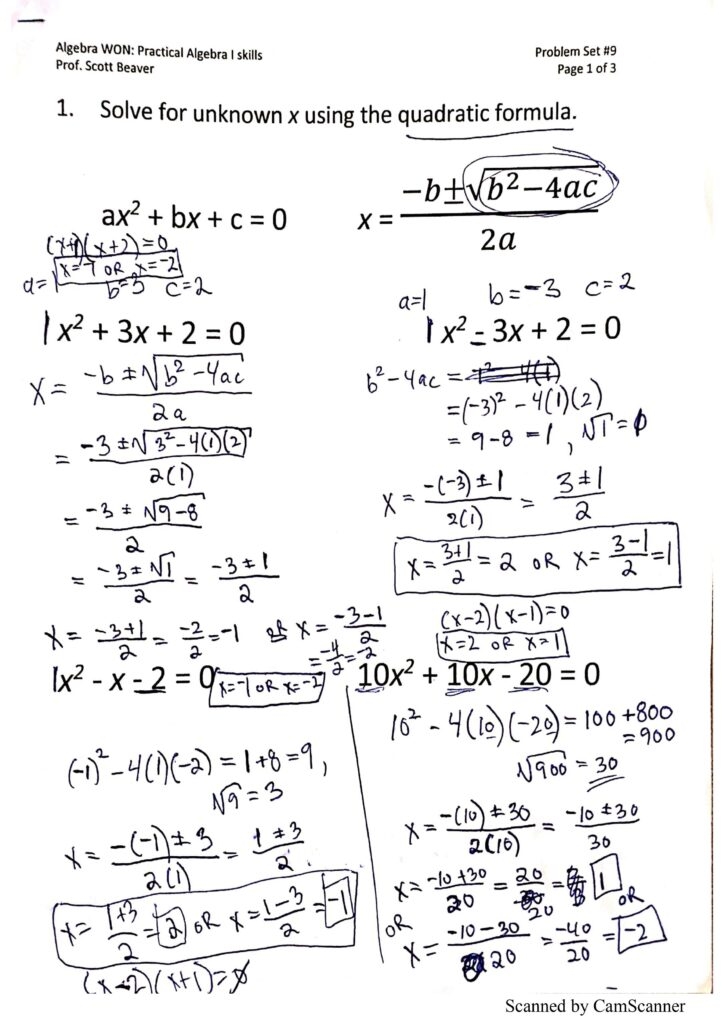 Algebra WON: Practical Algebra I skills
Prof. Scott Beaver
Problem Set #9
Page 1 of 3
1. Solve for unknown x using the quadratic formula.
ax² + bx + c = 0
x = (-b±√(b²-4ac))/2a
(x+1)(x+2)=0
x=-1 OR x=-2
a=1 b=3 c=2
1x² + 3x + 2 = 0
x = (-b ± √(b²-4ac))/2a
= (-3 ± √(3²-4(1)(2)))/2(1)
= (-3 ± √(9-8))/2
= (-3 ± √1)/2 = (-3 ± 1)/2
x = (-3+1)/2 = -2/2 = -1 OR x = (-3-1)/2
= -4/2 = -2
x=-1 OR x=-2
a=1 b=-3 c=2
1x² - 3x + 2 = 0
b²-4ac =
=(-3)² - 4(1)(2)
= 9-8 = 1, √1 =
x = (-(-3) ± 1)/2(1) = (3 ± 1)/2
x = (3+1)/2 = 2 OR x = (3-1)/2 = 1
(x-2)(x-1)=0
x=2 OR x=1
1x² - x - 2 = 0
(-1)² - 4(1)(-2) = 1+8 = 9,
√9 = 3
x = (-(-1) ± 3)/2(1) = (1 ± 3)/2
x = (1+3)/2 = 2 OR x = (1-3)/2 = -1
(x-2)(x+1)=0
10x² + 10x - 20 = 0
10² - 4(10)(-20) = 100 + 800
= 900
√900 = 30
x = (-(10) ± 30)/2(10) = (-10 ± 30)/30
x = (-10+30)/20 = 20/20 = 1
OR
OR
x = (-10-30)/20 = -40/20 = -2
Scanned by CamScanner